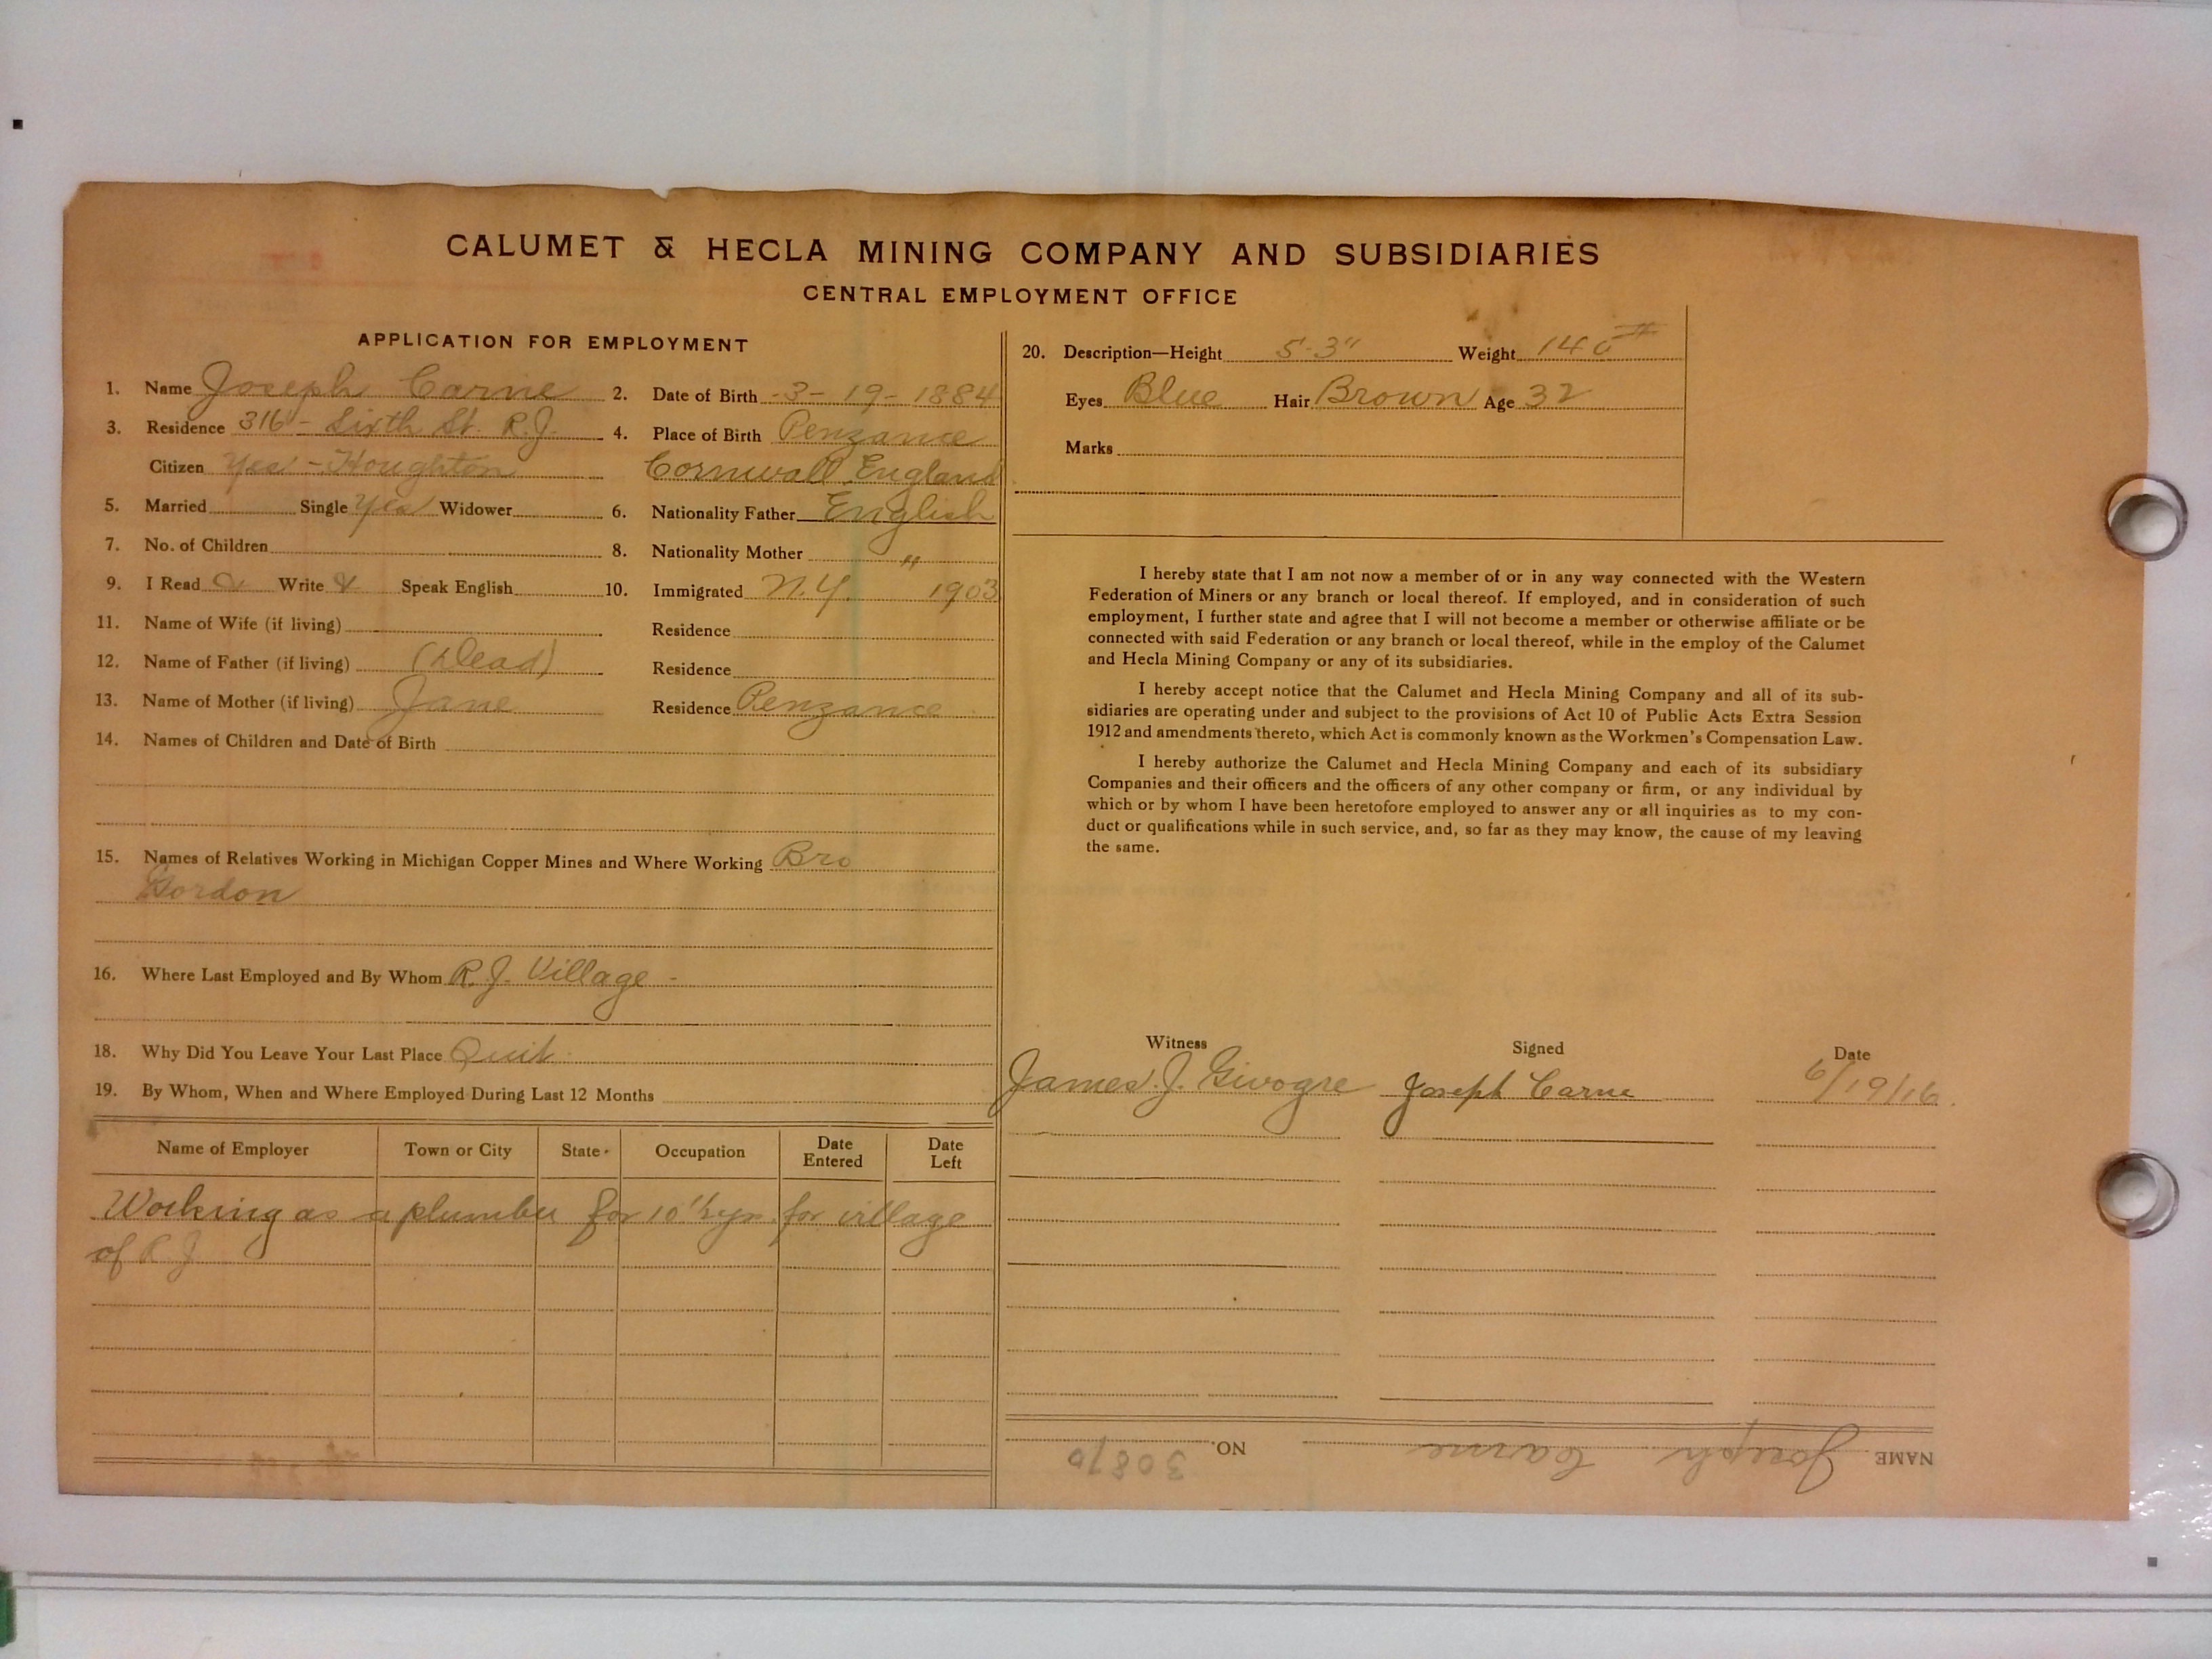 CALUMET & HECLA MINING COMPANY AND SUBSIDIARIES
CENTRAL EMPLOYMENT OFFICE
APPLICATION FOR EMPLOYMENT
1. Name Joseph Carne 2. Date of Birth -3-19-1884
3. Residence 316- Sixth St. R.J. 4. Place of Birth Penzance
Citizen Yes - Houghton Cornwall England
5. Married Single Yes Widower 6. Nationality Father English
7. No. of Children 8. Nationality Mother "
9. I Read Write & Speak English 10. Immigrated N.Y. 1903
11. Name of Wife (if living) Residence
12. Name of Father (if living) (Dead) Residence
13. Name of Mother (if living) Jane Residence Penzance
14. Names of Children and Date of Birth
15. Names of Relatives Working in Michigan Copper Mines and Where Working Bro
Gordon
16. Where Last Employed and By Whom R.J. Village -
18. Why Did You Leave Your Last Place Quit
19. By Whom, When and Where Employed During Last 12 Months
Name of Employer Town or City State Occupation Date Entered Date Left
Working as a plumber for 10 yrs. for village
of R.J.
20. Description—Height 5'-3" Weight 140#
Eyes Blue Hair Brown Age 32
Marks
I hereby state that I am not now a member of or in any way connected with the Western
Federation of Miners or any branch or local thereof. If employed, and in consideration of such
employment, I further state and agree that I will not become a member or otherwise affiliate or be
connected with said Federation or any branch or local thereof, while in the employ of the Calumet
and Hecla Mining Company or any of its subsidiaries.
I hereby accept notice that the Calumet and Hecla Mining Company and all of its sub-
sidiaries are operating under and subject to the provisions of Act 10 of Public Acts Extra Session
1912 and amendments thereto, which Act is commonly known as the Workmen's Compensation Law.
I hereby authorize the Calumet and Hecla Mining Company and each of its subsidiary
Companies and their officers and the officers of any other company or firm, or any individual by
which or by whom I have been heretofore employed to answer any or all inquiries as to my con-
duct or qualifications while in such service, and, so far as they may know, the cause of my leaving
the same.
Witness Signed Date
James J. Givogre Joseph Carne 6/19/16.
NAME Joseph Carne NO. 30870